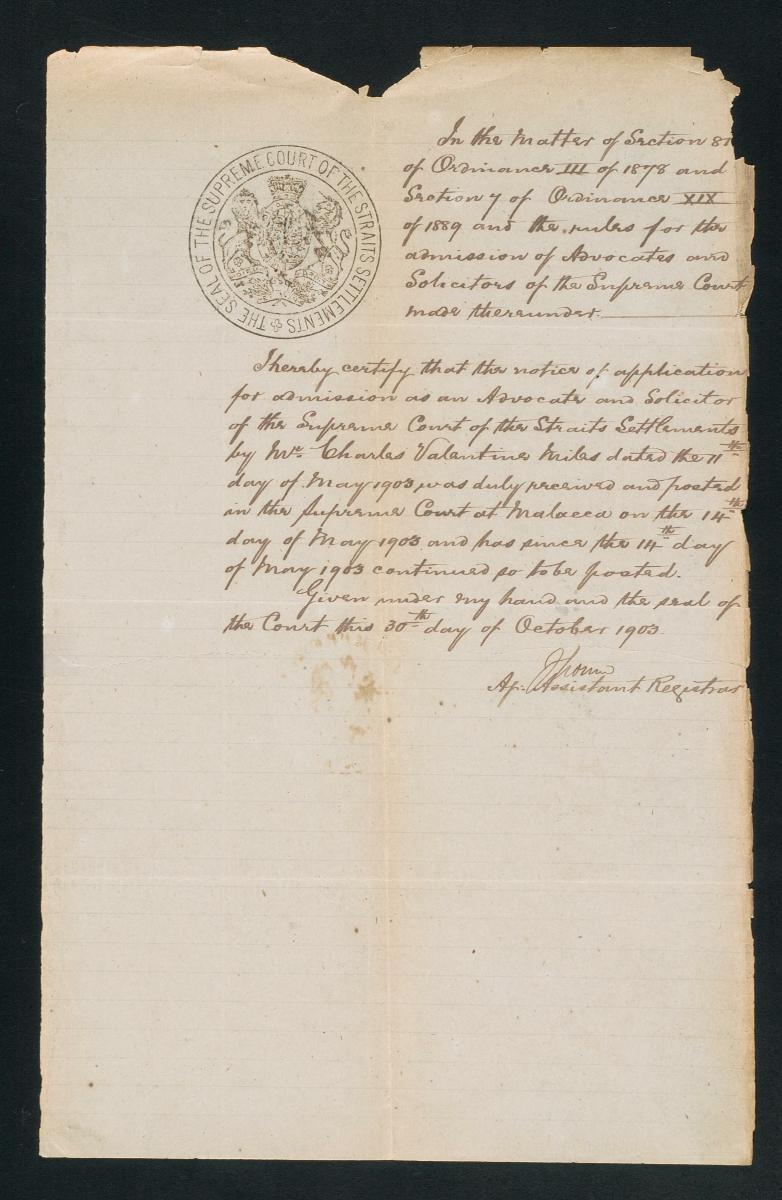 THE SEAL OF THE SUPREME COURT OF THE STRAITS SETTLEMENTS
In the Matter of Section 81
of Ordinance III of 1878 and
Section 7 of Ordinance XIX
of 1889 and the rules for the
admission of Advocates and
Solicitors of the Supreme Court
made thereunder.
I hereby certify that the notice of application
for admission as an Advocate and Solicitor
of the Supreme Court of the Straits Settlements
by Mr. Charles Valentine Miles dated the 11th
day of May 1903 was duly received and posted
in the Supreme Court at Malacca on the 14th
day of May 1903 and has since the 14th day
of May 1903 continued so to be posted.
Given under my hand and the seal of
the Court this 30th day of October 1903.
Assistant Registrar